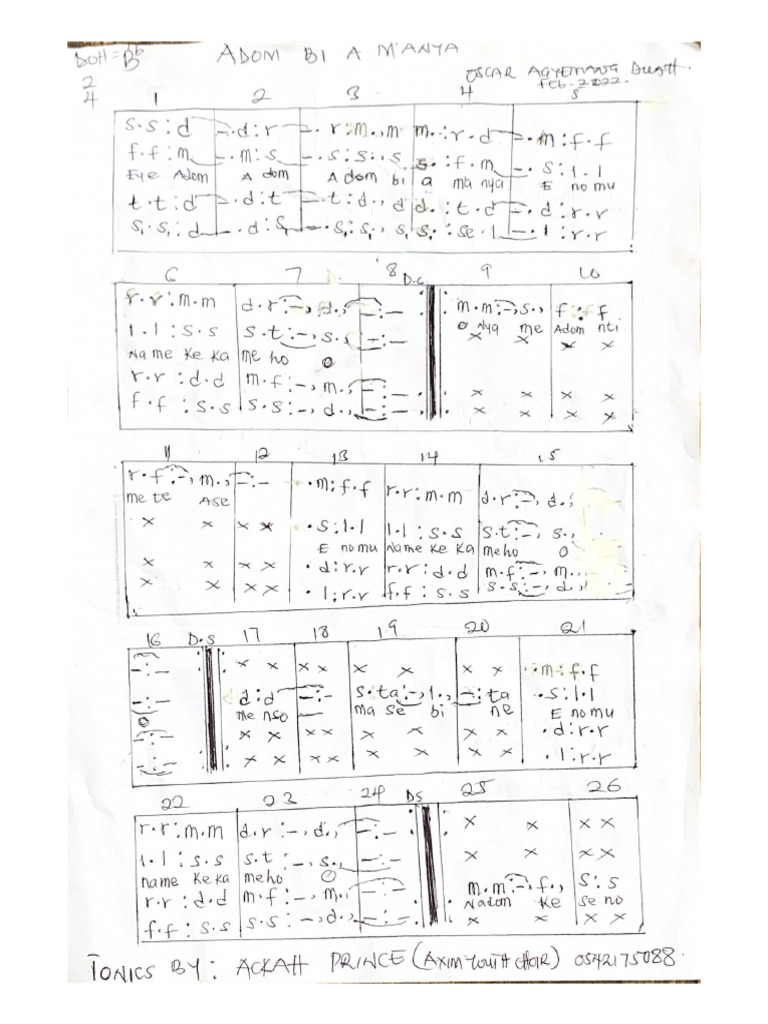 DOH = Bb ADOM BI A M'ANYA
2
4
OSCAR AGYEMANG Duah.
FEB-2022.
1 2 3 4 5
s.s:d -.d:r -. r:m.,m m.:r.d -.m:f.f
f.f:m -.m:s -.s:s.,s s.:f.m -.s:l.l
Eye Adom A dom A dom bi a ma nya E no mu
t.t:d -.d:t -.t:d., d d.:t.d -.d:r.r
s,.s,:d -.d:s, -.s,:s,., s, s,:se.l -.l:r.r
6 7 8 D.C 9 10
r.r:m.m d.r:-, d., -:- m.m:-, s., f:f
l.l:s.s s.t:-, s., -:- O Nya me Adom nti
Na me Ke Ka me ho O x x x x
r.r:d.d m.f:-, m., -:- x x x x
f.f:s.s s.s:-, d., -:- x x x x
11 12 13 14 15
r.f:-, m., -:- .m:f.f r.r:m.m d.r:-, d.,
me te Ase
x x x x .s:l.l l.l:s.s s.t:-, s.,
E no mu Name Ke Ka me ho O
x x x x .d:r.r r.r:d.d m.f:-, m.,
x x x x .l:r.r f.f:s.s s.s:-, d.,
16 D.S 17 18 19 20 21
-:- x x x x x x x x .m:f.f
-:- d:d -:- s.ta:-, l., -:ta .s:l.l
O me nso ma se bi ne E no mu
-:- x x x x x x x x .d:r.r
-:- x x x x x x x x .l:r.r
22 23 24 DS 25 26
r.r:m.m d.r:-, d., -:- x x x x
l.l:s.s s.t:-, s., -:- x x x x
name Ke Ka me ho O
r.r:d.d m.f:-, m., -:- m.m:-, f., s:s
Nadom Ke se no
f.f:s.s s.s:-, d., -:- x x x x
TONICS BY: ACKAH PRINCE (AXIM YOUTH CHOIR) 0542175088.